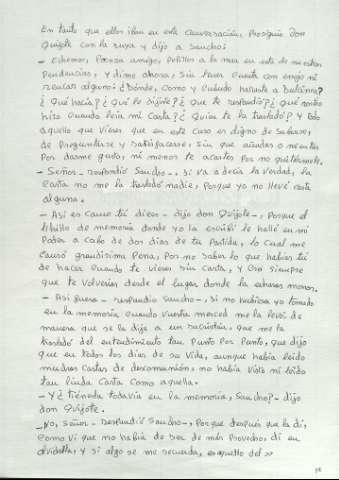 En tanto que ellos iban en esta conversación, prosiguió Don
Quijote con la suya y dijo a Sancho:
- Echemos, Panza amigo, pelillos a la mar en esto de nuestras
Pendencias, y dime ahora, sin tener cuenta con enojo ni
rencor alguno: ¿Dónde, cómo y cuándo hallaste a Dulcinea?
¿Qué hacía? ¿Qué le dijiste? ¿Qué te respondió? ¿Qué rostro
hizo cuando leía mi carta? ¿Quién te la trasladó? Y todo
aquello que vieres que en este caso es digno de saberse,
de preguntarse y satisfacerse, sin que añadas o mientas
por darme gusto, ni menos te acortes por no quitármele.
- Señor - respondió Sancho -, si va a decir la verdad, la
carta no me la trasladó nadie, porque yo no llevé carta
alguna.
- Así es como tú dices - dijo Don Quijote -, porque el
librillo de memoria donde yo la escribí le hallé en mi
poder a cabo de dos días de tu partida, lo cual me
causó grandísima pena, por no saber lo que habías tú
de hacer cuando te vieses sin carta, y creí siempre
que te volvieras desde el lugar donde la echaras menos.
- Así fuera - respondió Sancho -, si no hubiera yo tomado
en la memoria cuando vuestra merced me la leyó de
manera que se la dije a un sacristán, que me la
trasladó del entendimiento tan punto por punto, que dijo
que en todos los días de su vida, aunque había leído
muchas cartas de descomunión, no había visto ni leído
tan linda carta como aquella.
- Y ¿tiénesla todavía en la memoria, Sancho? - dijo
don Quijote.
- No, señor - respondió Sancho -, porque después que la di,
como vi que no había de ser de más provecho, di en
olvidalla, y si algo se me acuerda, es aquello del >>